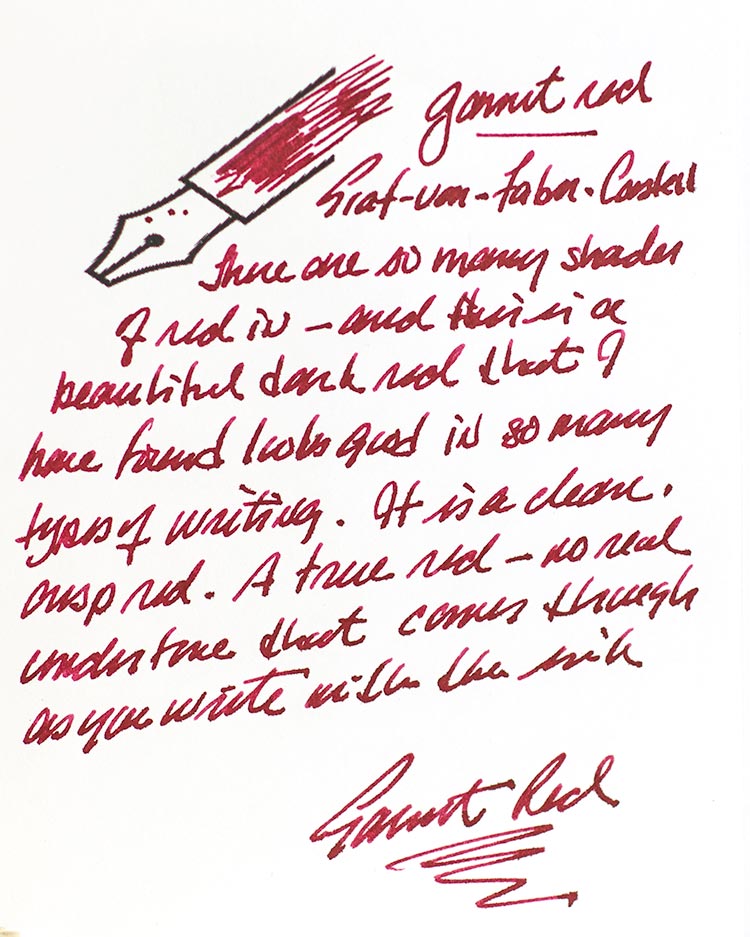 garnet red
Graf-von-Faber-Castell
There are so many shades
of red in – and this is a
beautiful dark red that I
have found looks good in so many
types of writing. It is a clean.
crisp red. A true red – no real
undertone that comes through
as you write with the ink
Garnet Red